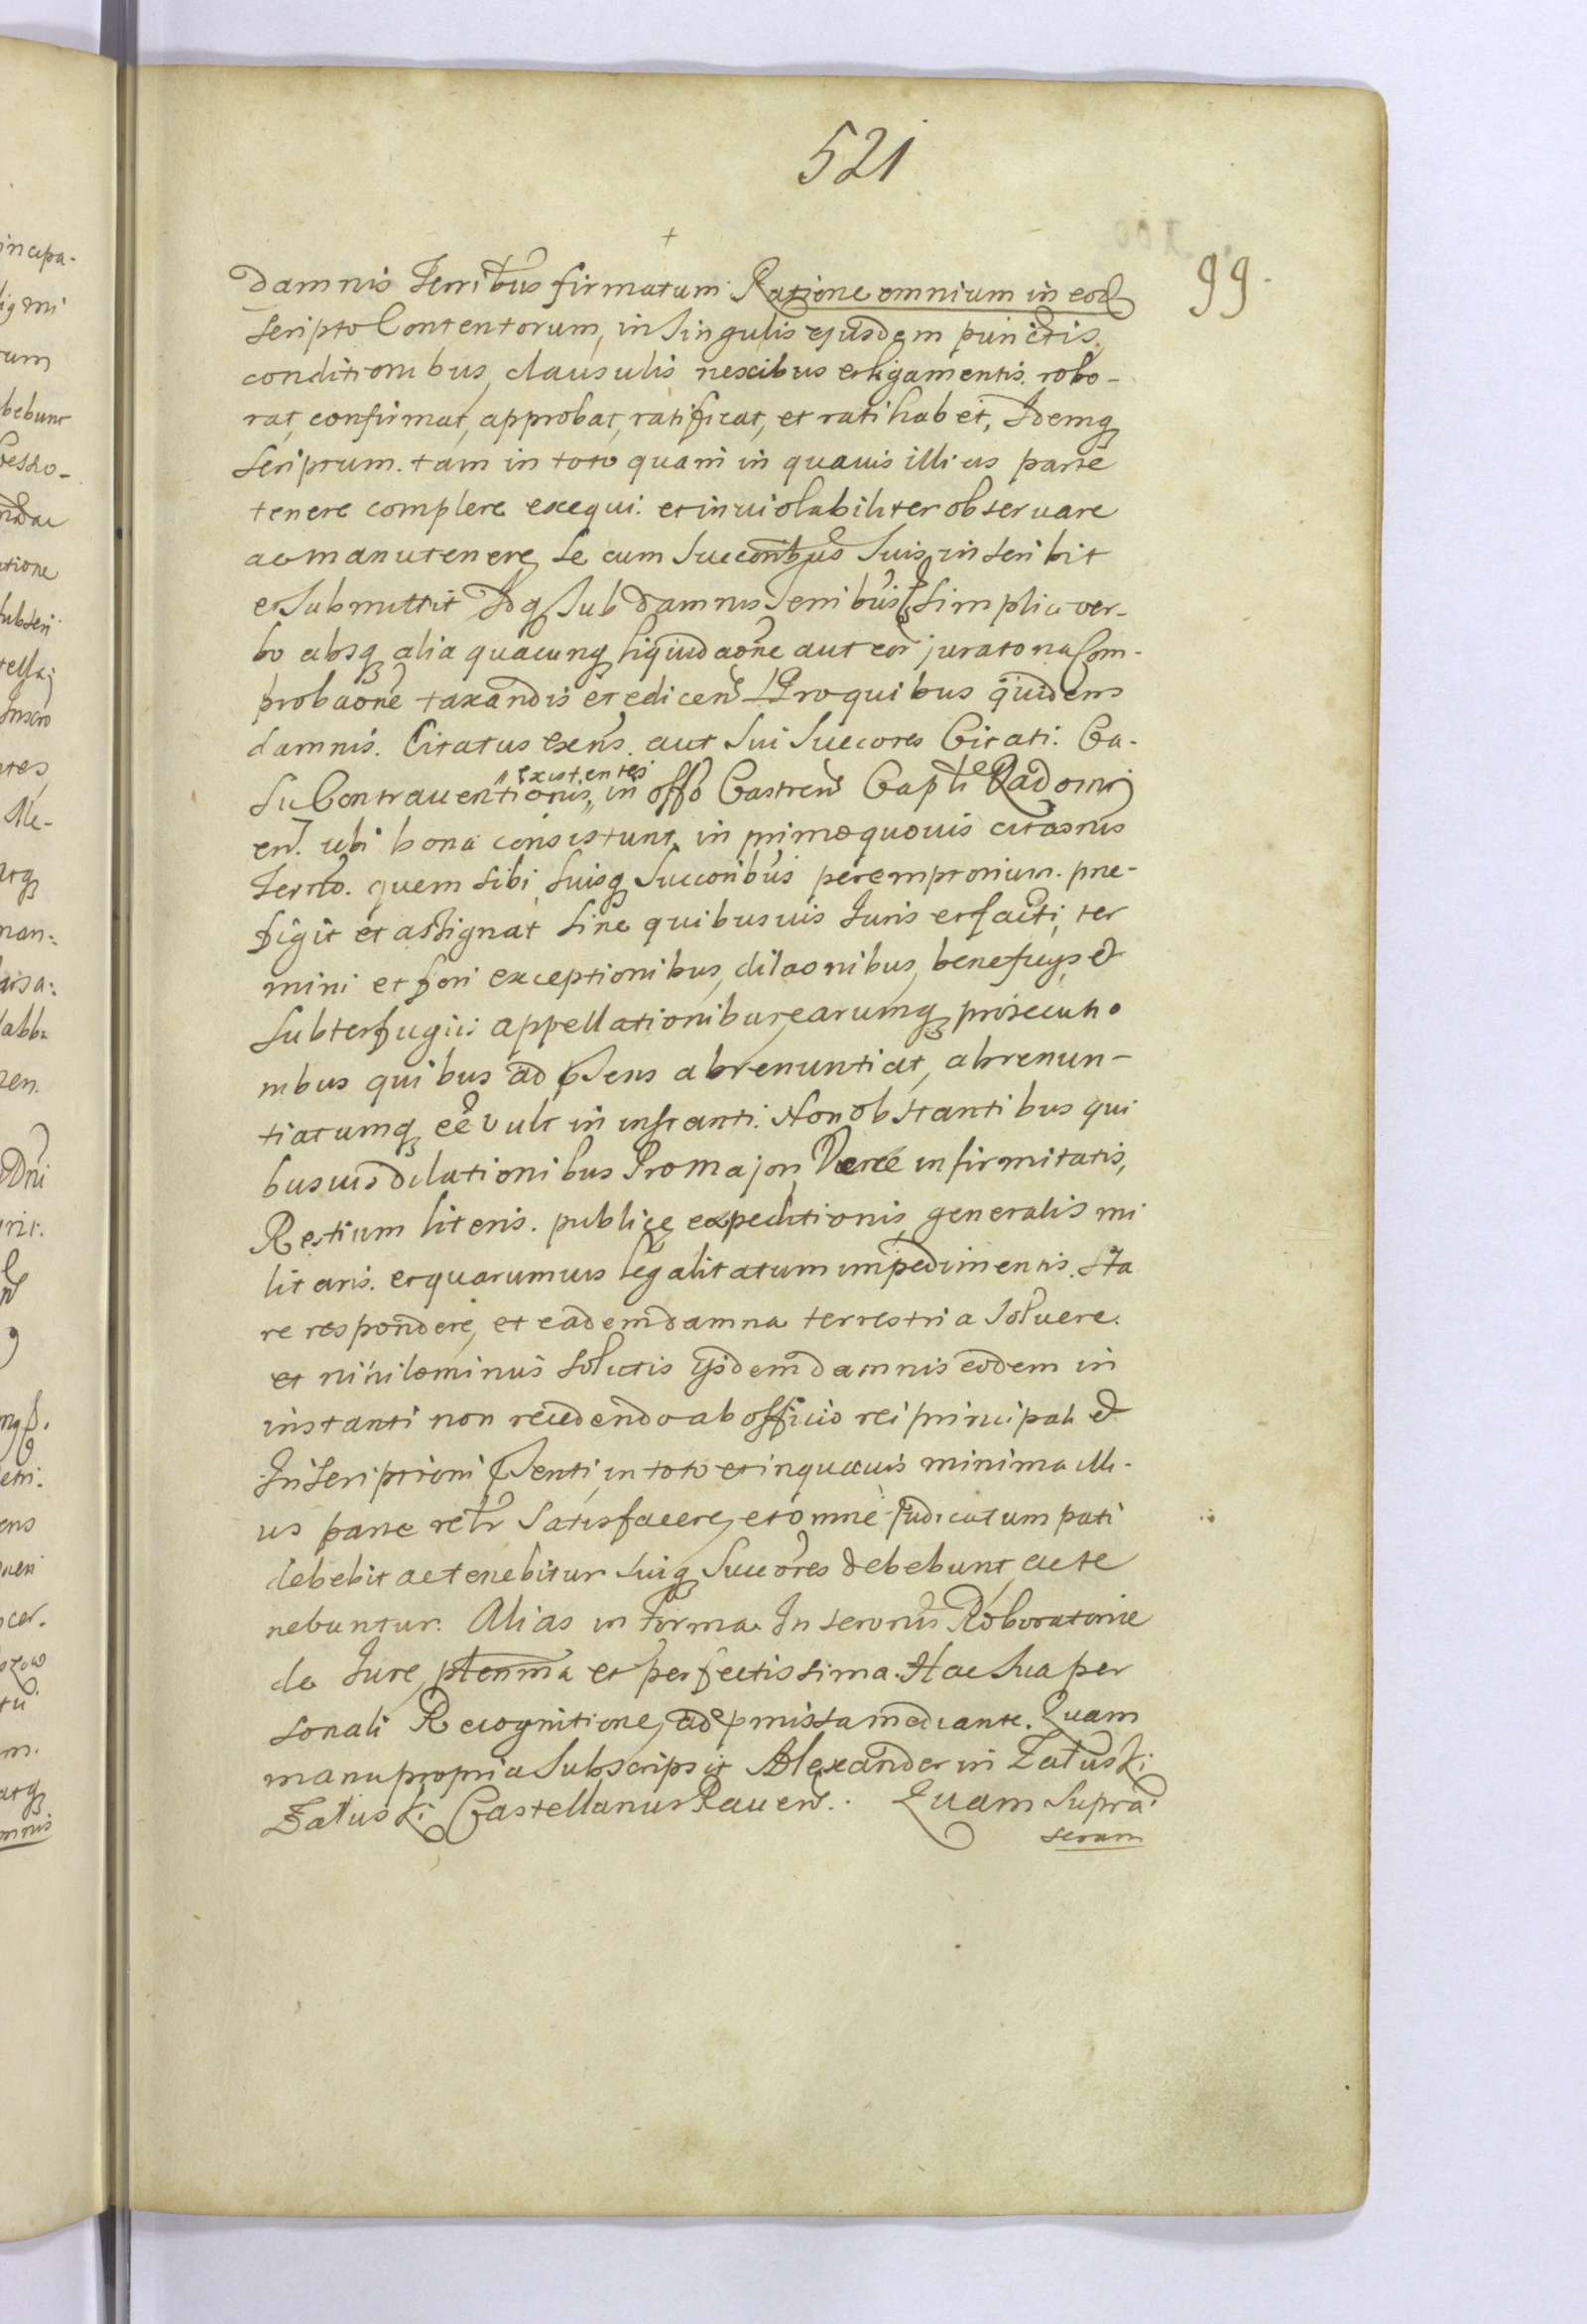 521
99.
damnis Terribus firmatum Ratione omnium in eod
scripto Contentorum, in singulis ejusdem punctis,
conditionibus, clausulis nexibus et ligamentis robo-
rat, confirmat, approbat, ratificat, et ratihabet, Idemq
scriptum tam in toto quam in quavis illius parte
tenere complere exequi et inviolabiliter observare
ac manutenere se cum Succoribus suis inscribit
et submittit Idq sub damnis Terribus simplici ver-
bo absq alia quacunq liquidaone aut eor juratoria Com-
probaone taxandis et edicen Pro quibus quidem
damnis. Citatus exens aut sui Succores Citati. Ca-
su Contraventionis, in offo Castren Capli Radomi
existentes
en. ubi bona consistunt in primo quovis citaonis
Termo. quem sibi suisq Succoribus peremptorium. pre-
figit et assignat sine quibusvis Juris et facti, ter
mini et fori exceptionibus, dilaonibus, beneficijs et
subterfugiis appellationibus, earumq prosecutio
nibus quibus ad psens abrenuntiat, abrenun-
tiatumq eē vult in instanti. Non obstantibus qui
busvis dilationibus Pro majori, Verae infirmitatis,
Restium literis. publicę expeditionis generalis mi
litaris. et quarumvis legalitatum impedimentis. Sta
re respondere, et eadem damna terrestria solvere.
et nihilominus solutis ijsdem damnis eodem in
instanti non recedendo ab officio rei principali et
Inscriptioni psenti, in toto et in quavis minima illi-
us parte retr satisfacere, et omne judicatum pati
debebit ac tenebitur suiq Succores debebunt ac te
nebuntur. Alias in forma Inscronis Roboratoriae
de Jure plenma et perfectissima. Hac sua per
sonali Recognitione, ad pmissa mediante. Quam
manu propria subscripsit Alexander in Załuski
Załuski Castellanus Raven. Quam supra
scram